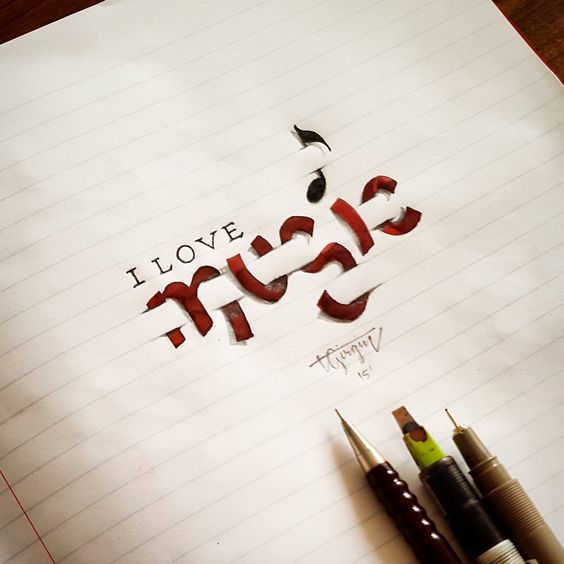 I LOVE
music
Girgin
15'